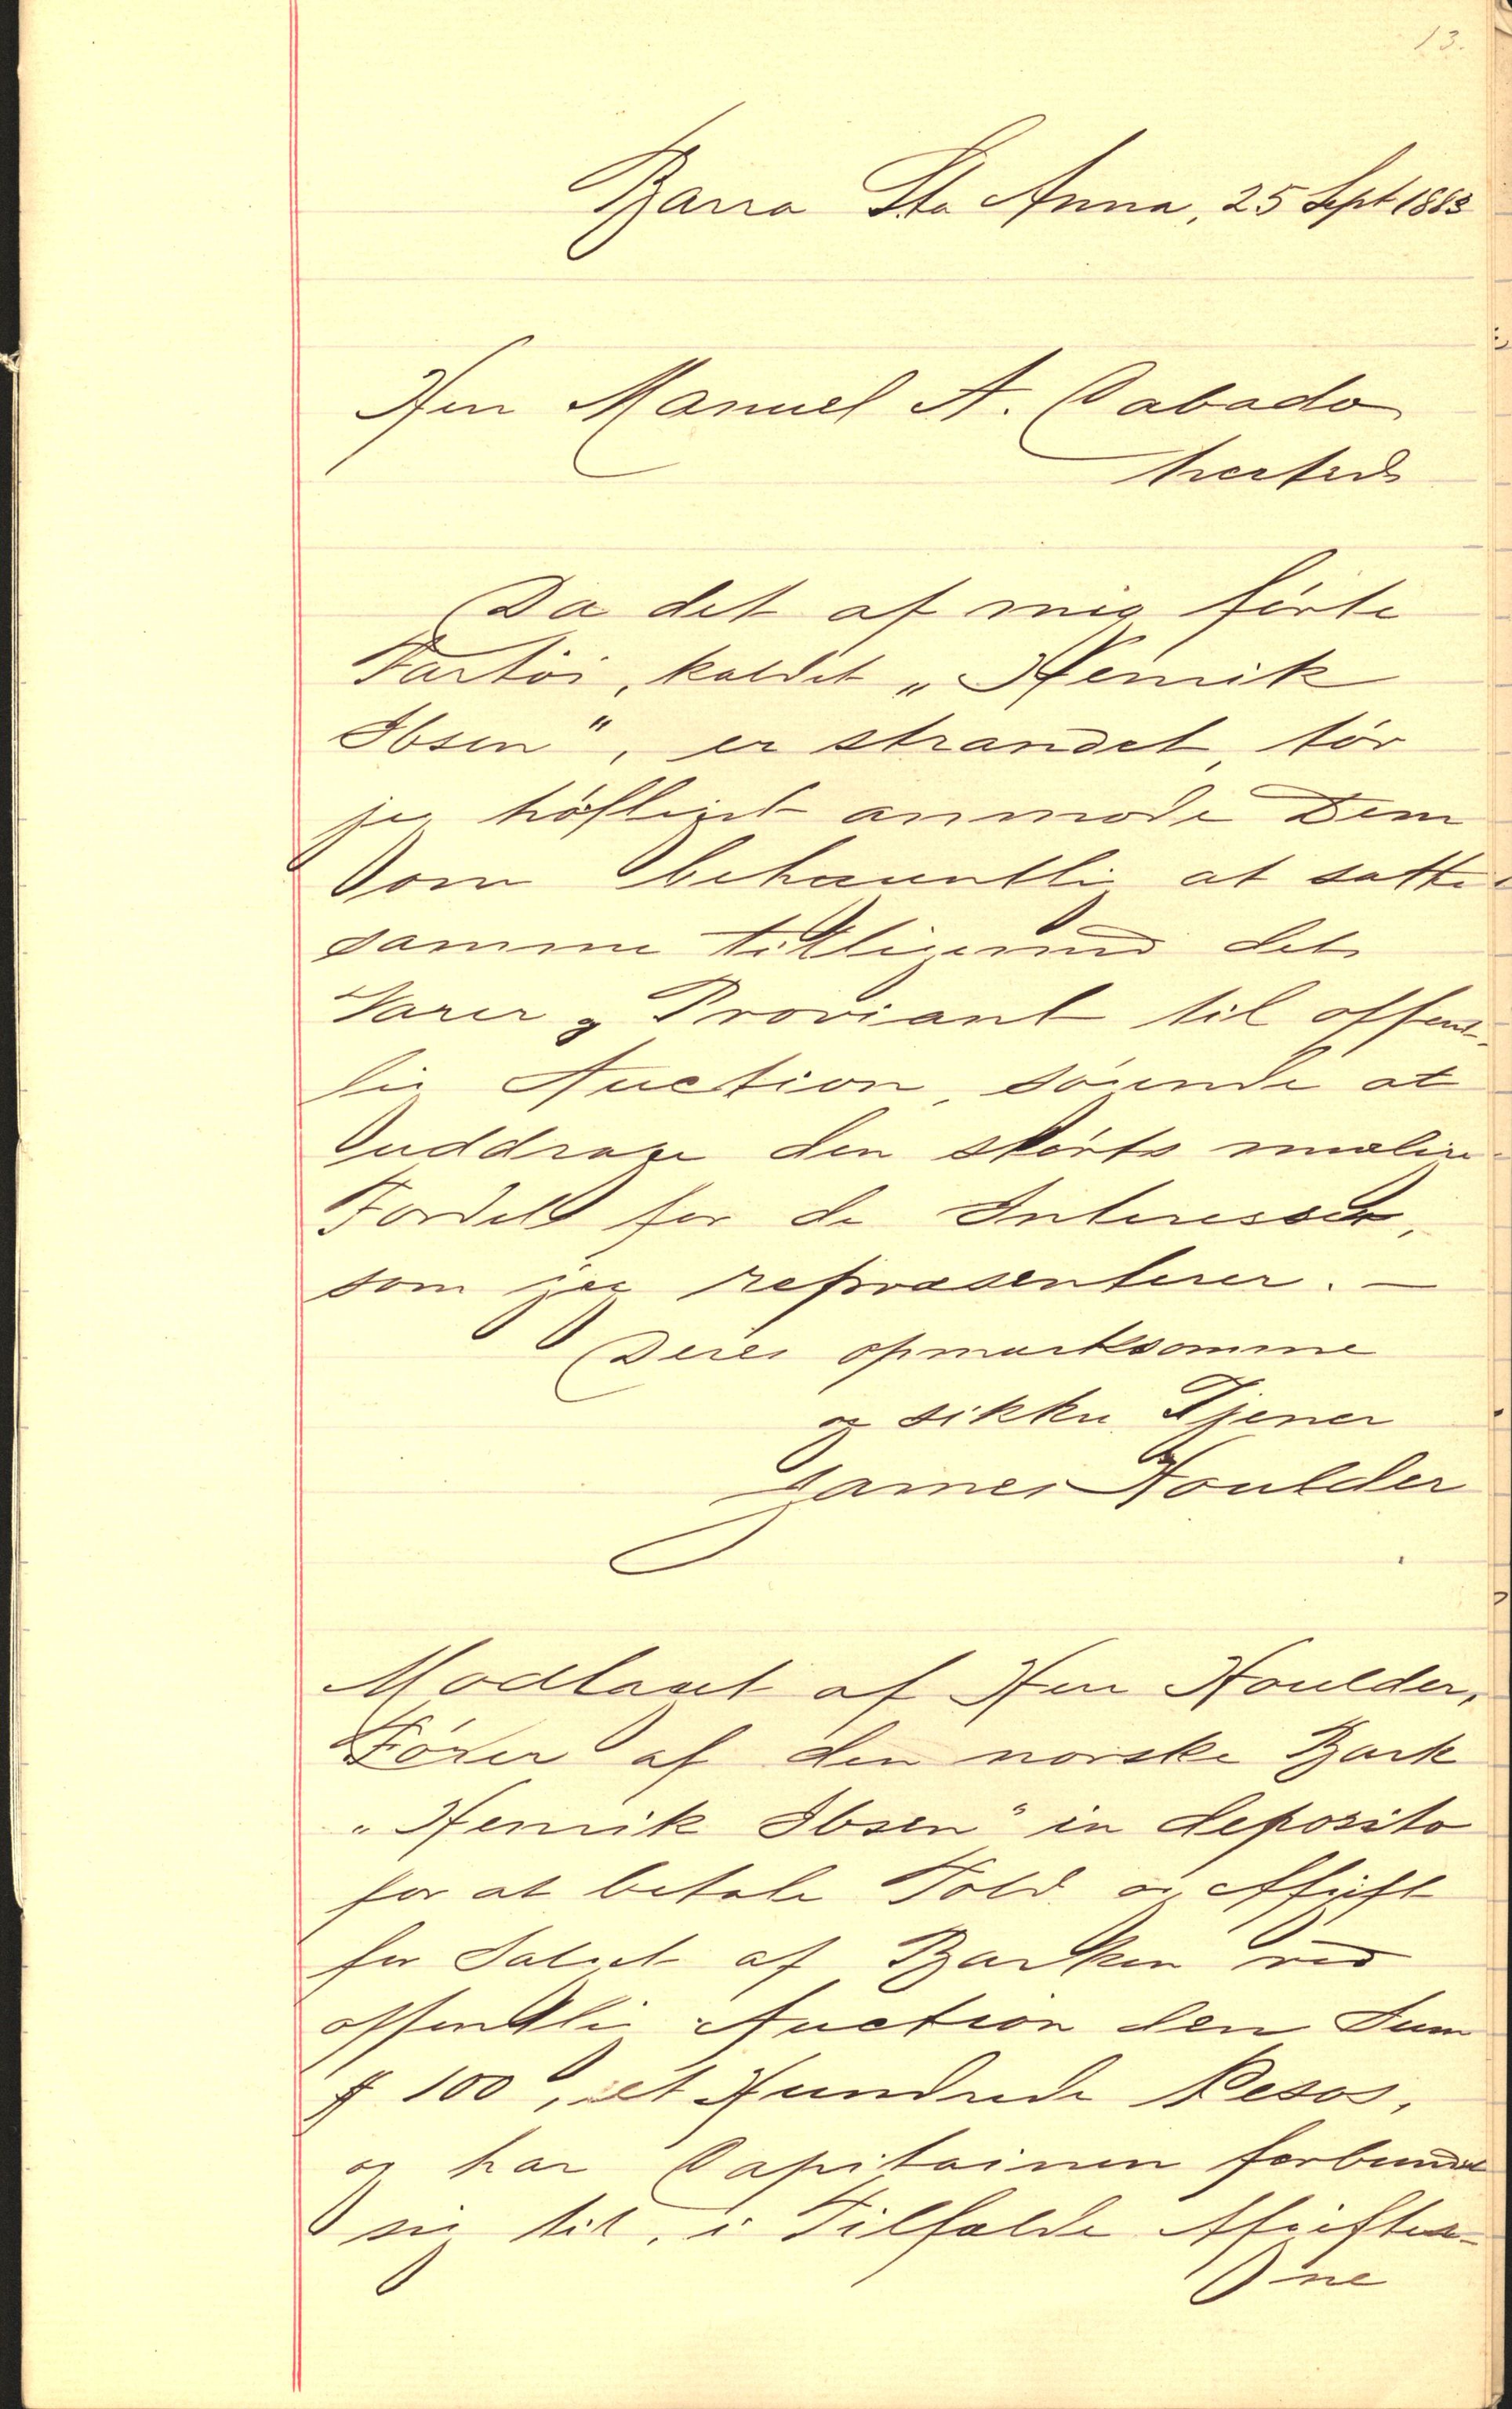 13.
Barra Sta Anna, 25 Sept 1883
Herr Manuel A. Cabado
hersteds
Da det af mig förte
Fartöi, kaldet „Henrik
Ibsen", er strandet, tör
jeg höfligst anmode Dem
om behændtlig at sætte
samme tilligemed dets
Varer og Proviant til offent-
lig Auction, søgende at
uddrage den størts mulige
Fordel for de Interesser,
som jeg repræsenterer. —
Deres opmærksomme
og sikkre Tjener
James Houlder
Modtaget af Herr Houlder,
Förer af den norske Bark
„Henrik Ibsen" in deposito
for at betale Told og Afgift
for Salget af Barken ved
offentlig Auction den Sum
$ 100, et Hundrede Pesos,
og har Capitainen forbundet
sig til, i Tilfælde Afgifter-
ne